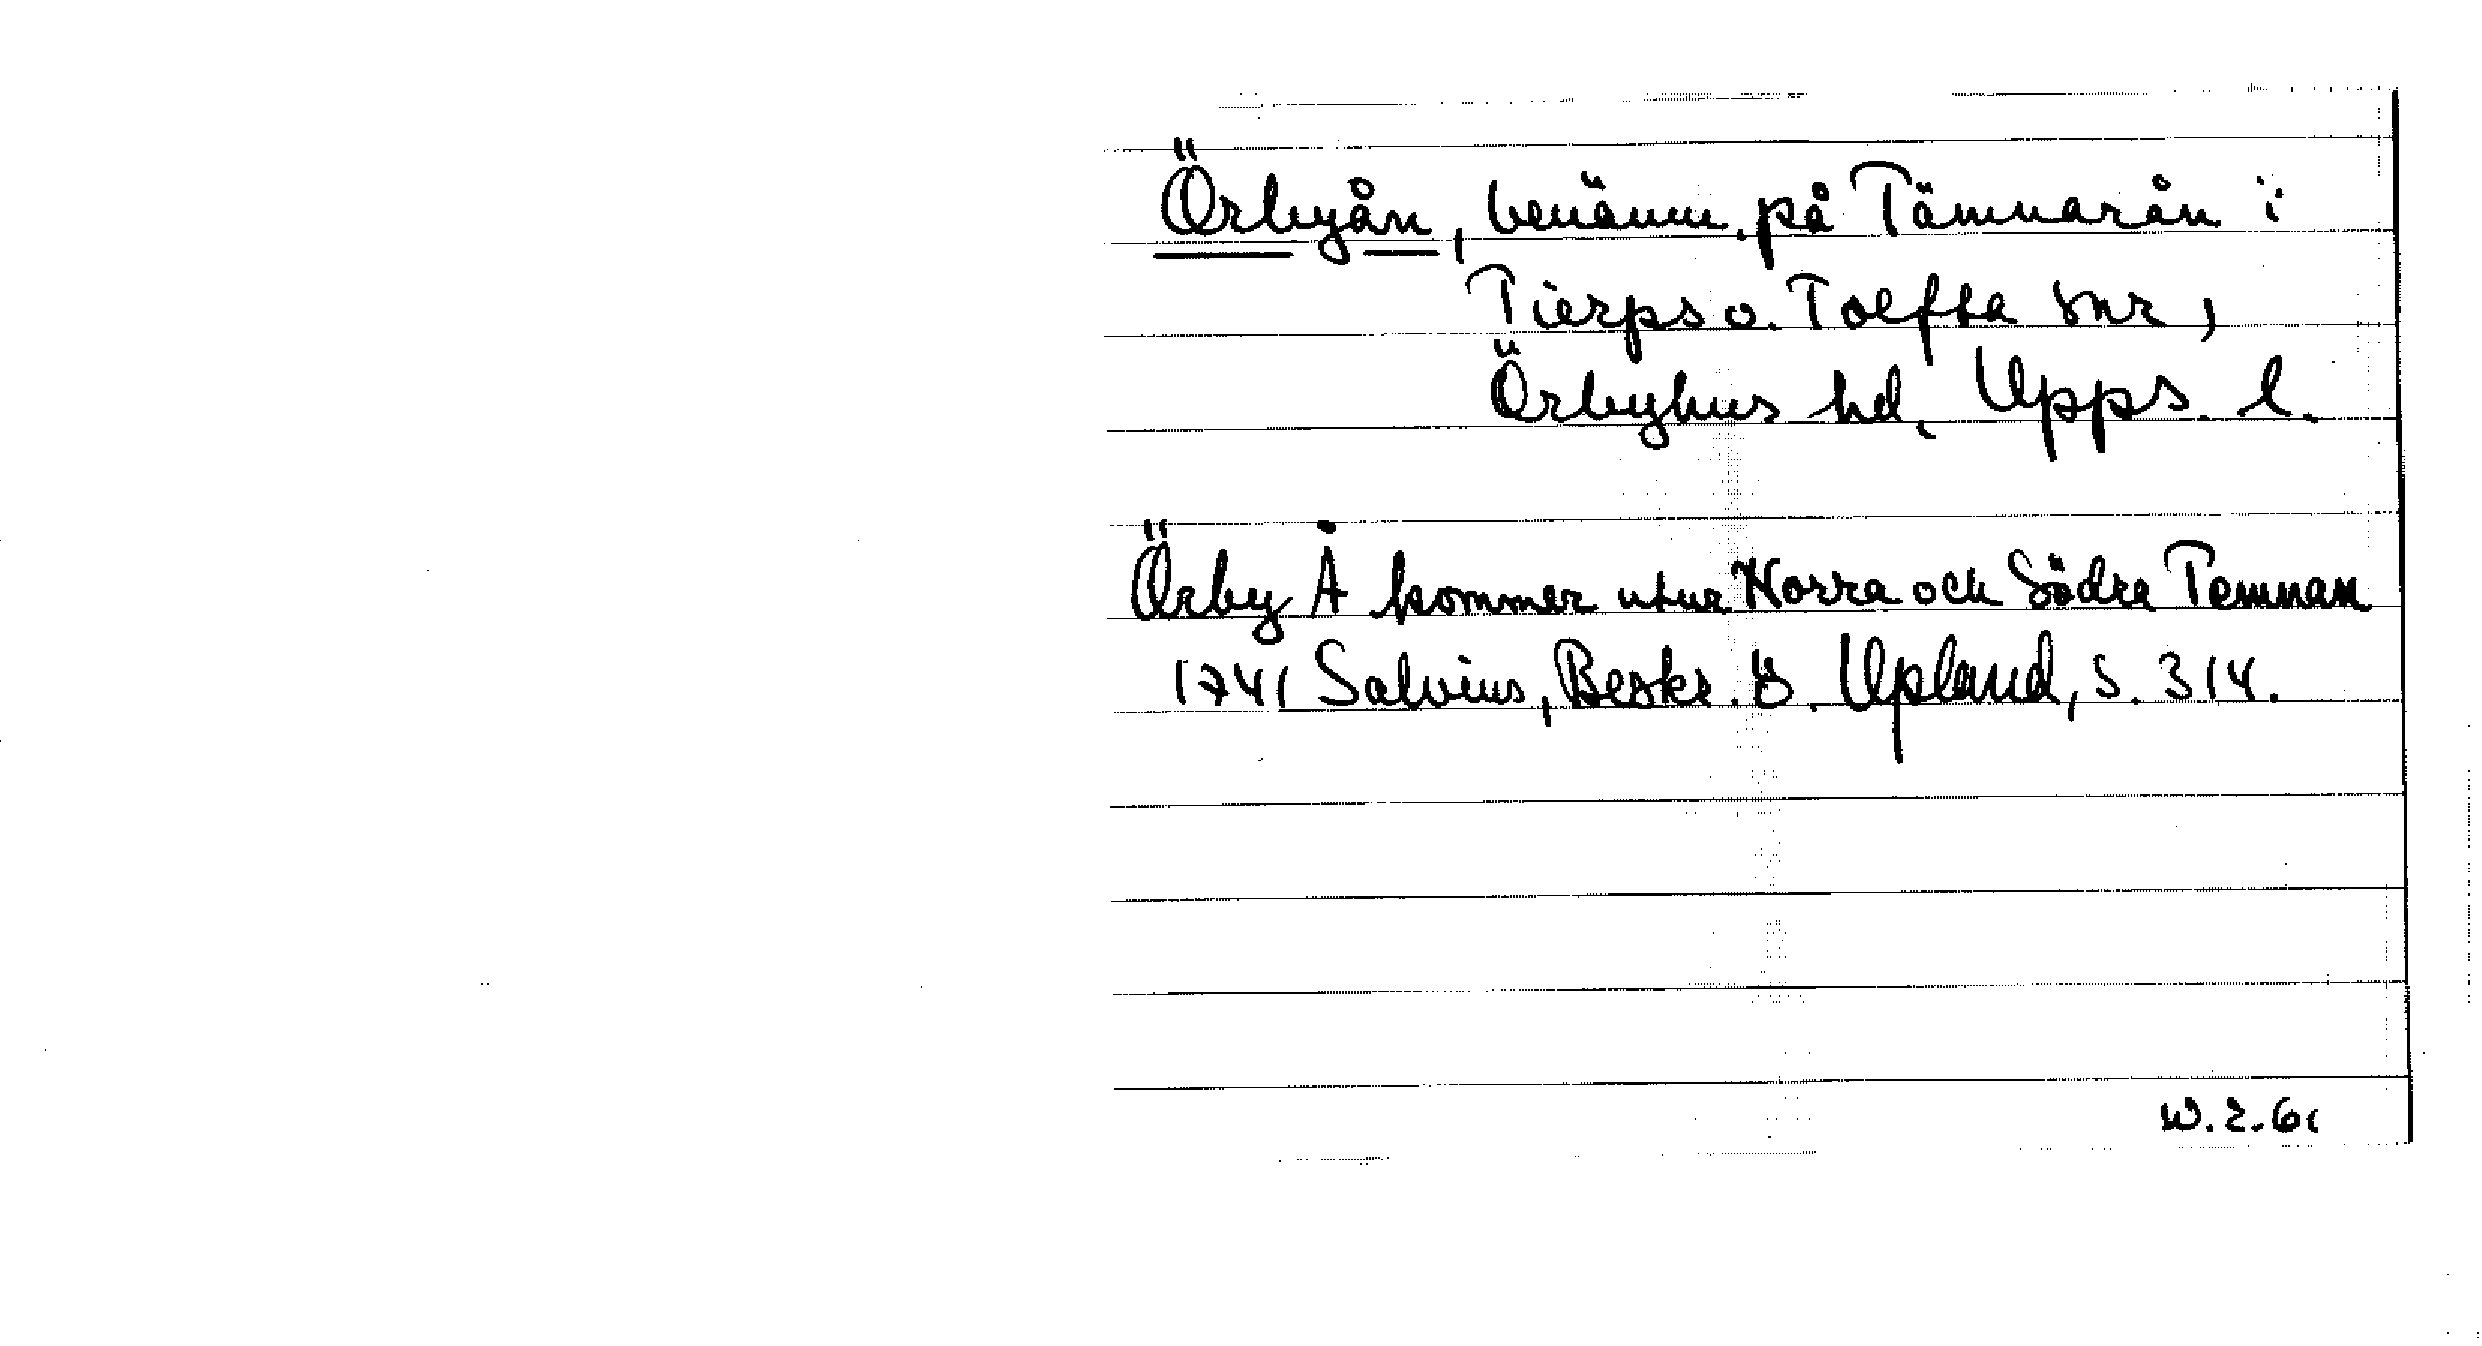 Örbyån, benämn. på Tämnarån i
Tierps o. Tolfta snr,
Örbyhus hd, Upps. l.
Örby Å kommer utur Norra och Södra Temnan
1741 Salvius, Beskr. ö. Upland, s. 314.
W.2.61